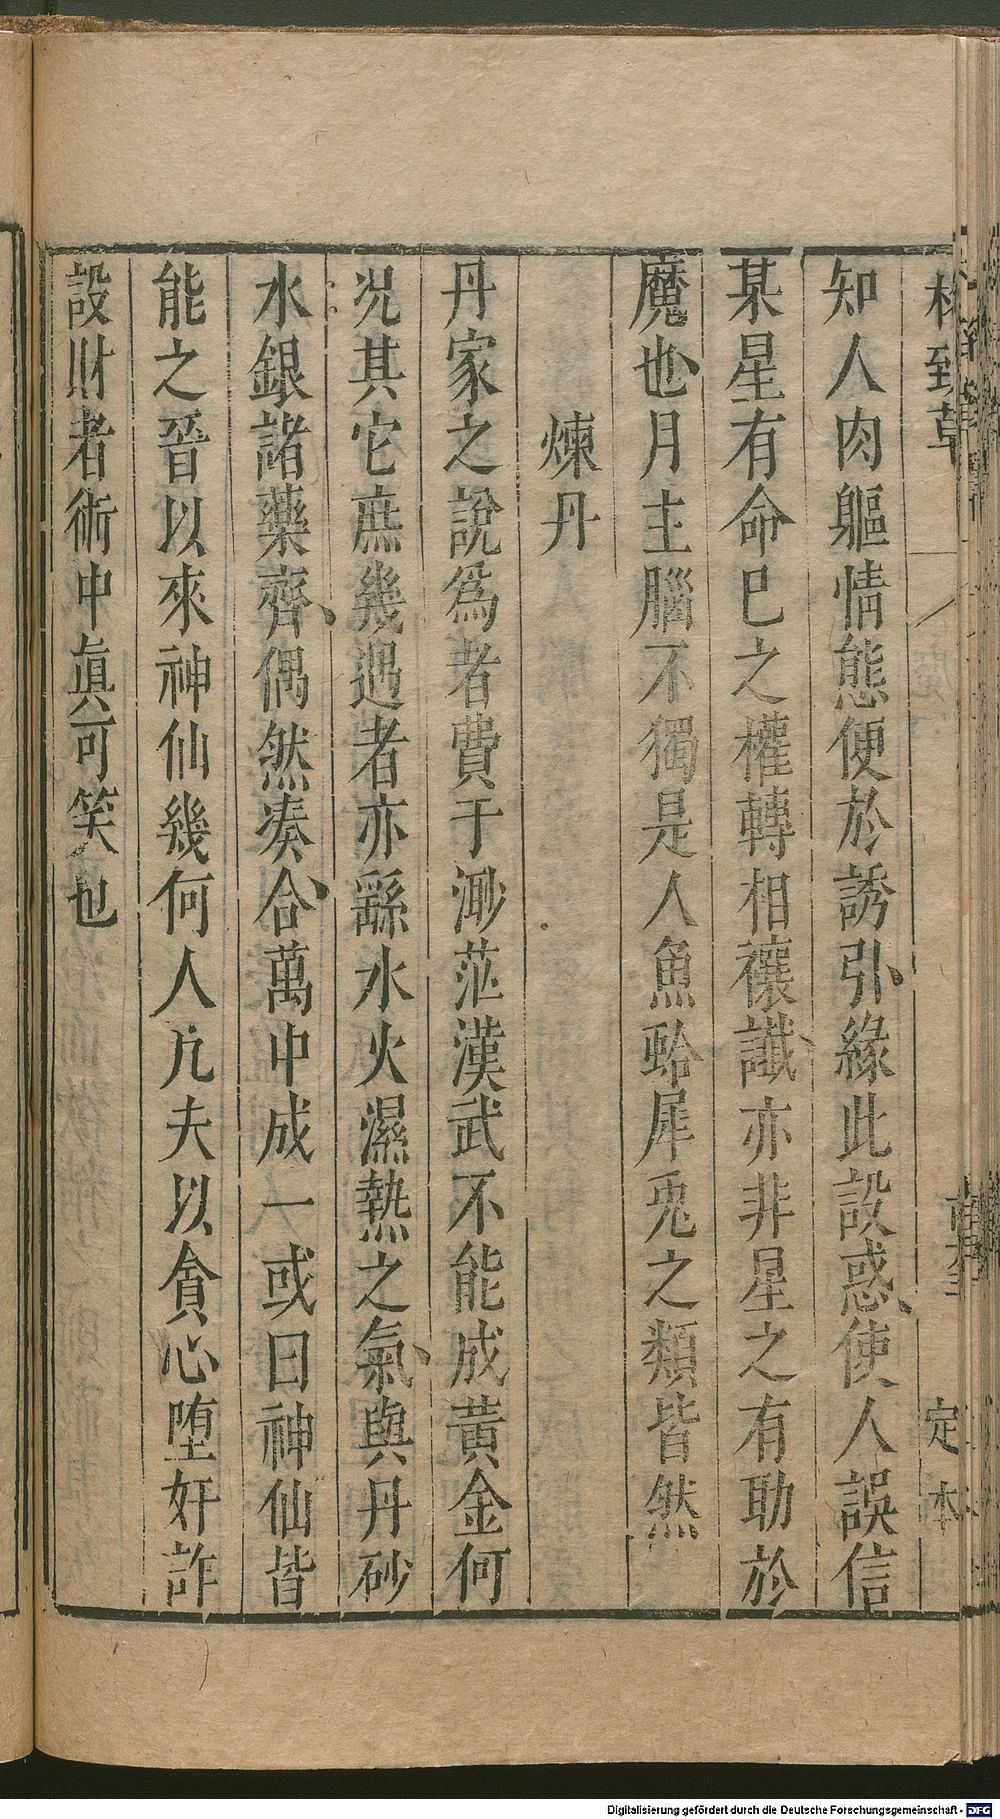 格致草
定本
知人肉軀情態便於誘引緣此設惑使人誤信
某星有命巳之權轉相禳讖亦非星之有助於
魔也月主腦不獨是人魚蛤犀兎之類皆然
煉丹
丹家之說爲者費于渺茫漢武不能成黃金何
況其它庶幾遇者亦繇水火濕熱之氣與丹砂
水銀諸藥齊偶然凑合萬中成一或曰神仙皆
能之晉以來神仙幾何人凢夫以貪心墮奸詐
設財者術中眞可笑也
Digitalisierung gefördert durch die Deutsche Forschungsgemeinschaft - DFG